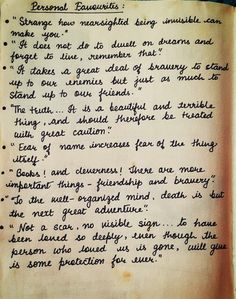 Personal Favourites :
• "Strange how nearsighted being invisible can
make you."
• "It does not do to dwell on dreams and
forget to live, remember that".
• "It takes a great deal of bravery to stand
up to our enemies but just as much to
stand up to our friends."
• "The truth... It is a beautiful and terrible
thing, and should therefore be treated
with great caution".
• "Fear of name increases fear of the thing
itself."
• "Books! and cleverness! There are more
important things - friendship and bravery".
• "To the well-organized mind, death is but
the next great adventure".
• "Not a scar, no visible sign... to have
been loved so deeply, even though the
person who loved us is gone, will give
is some protection for ever."